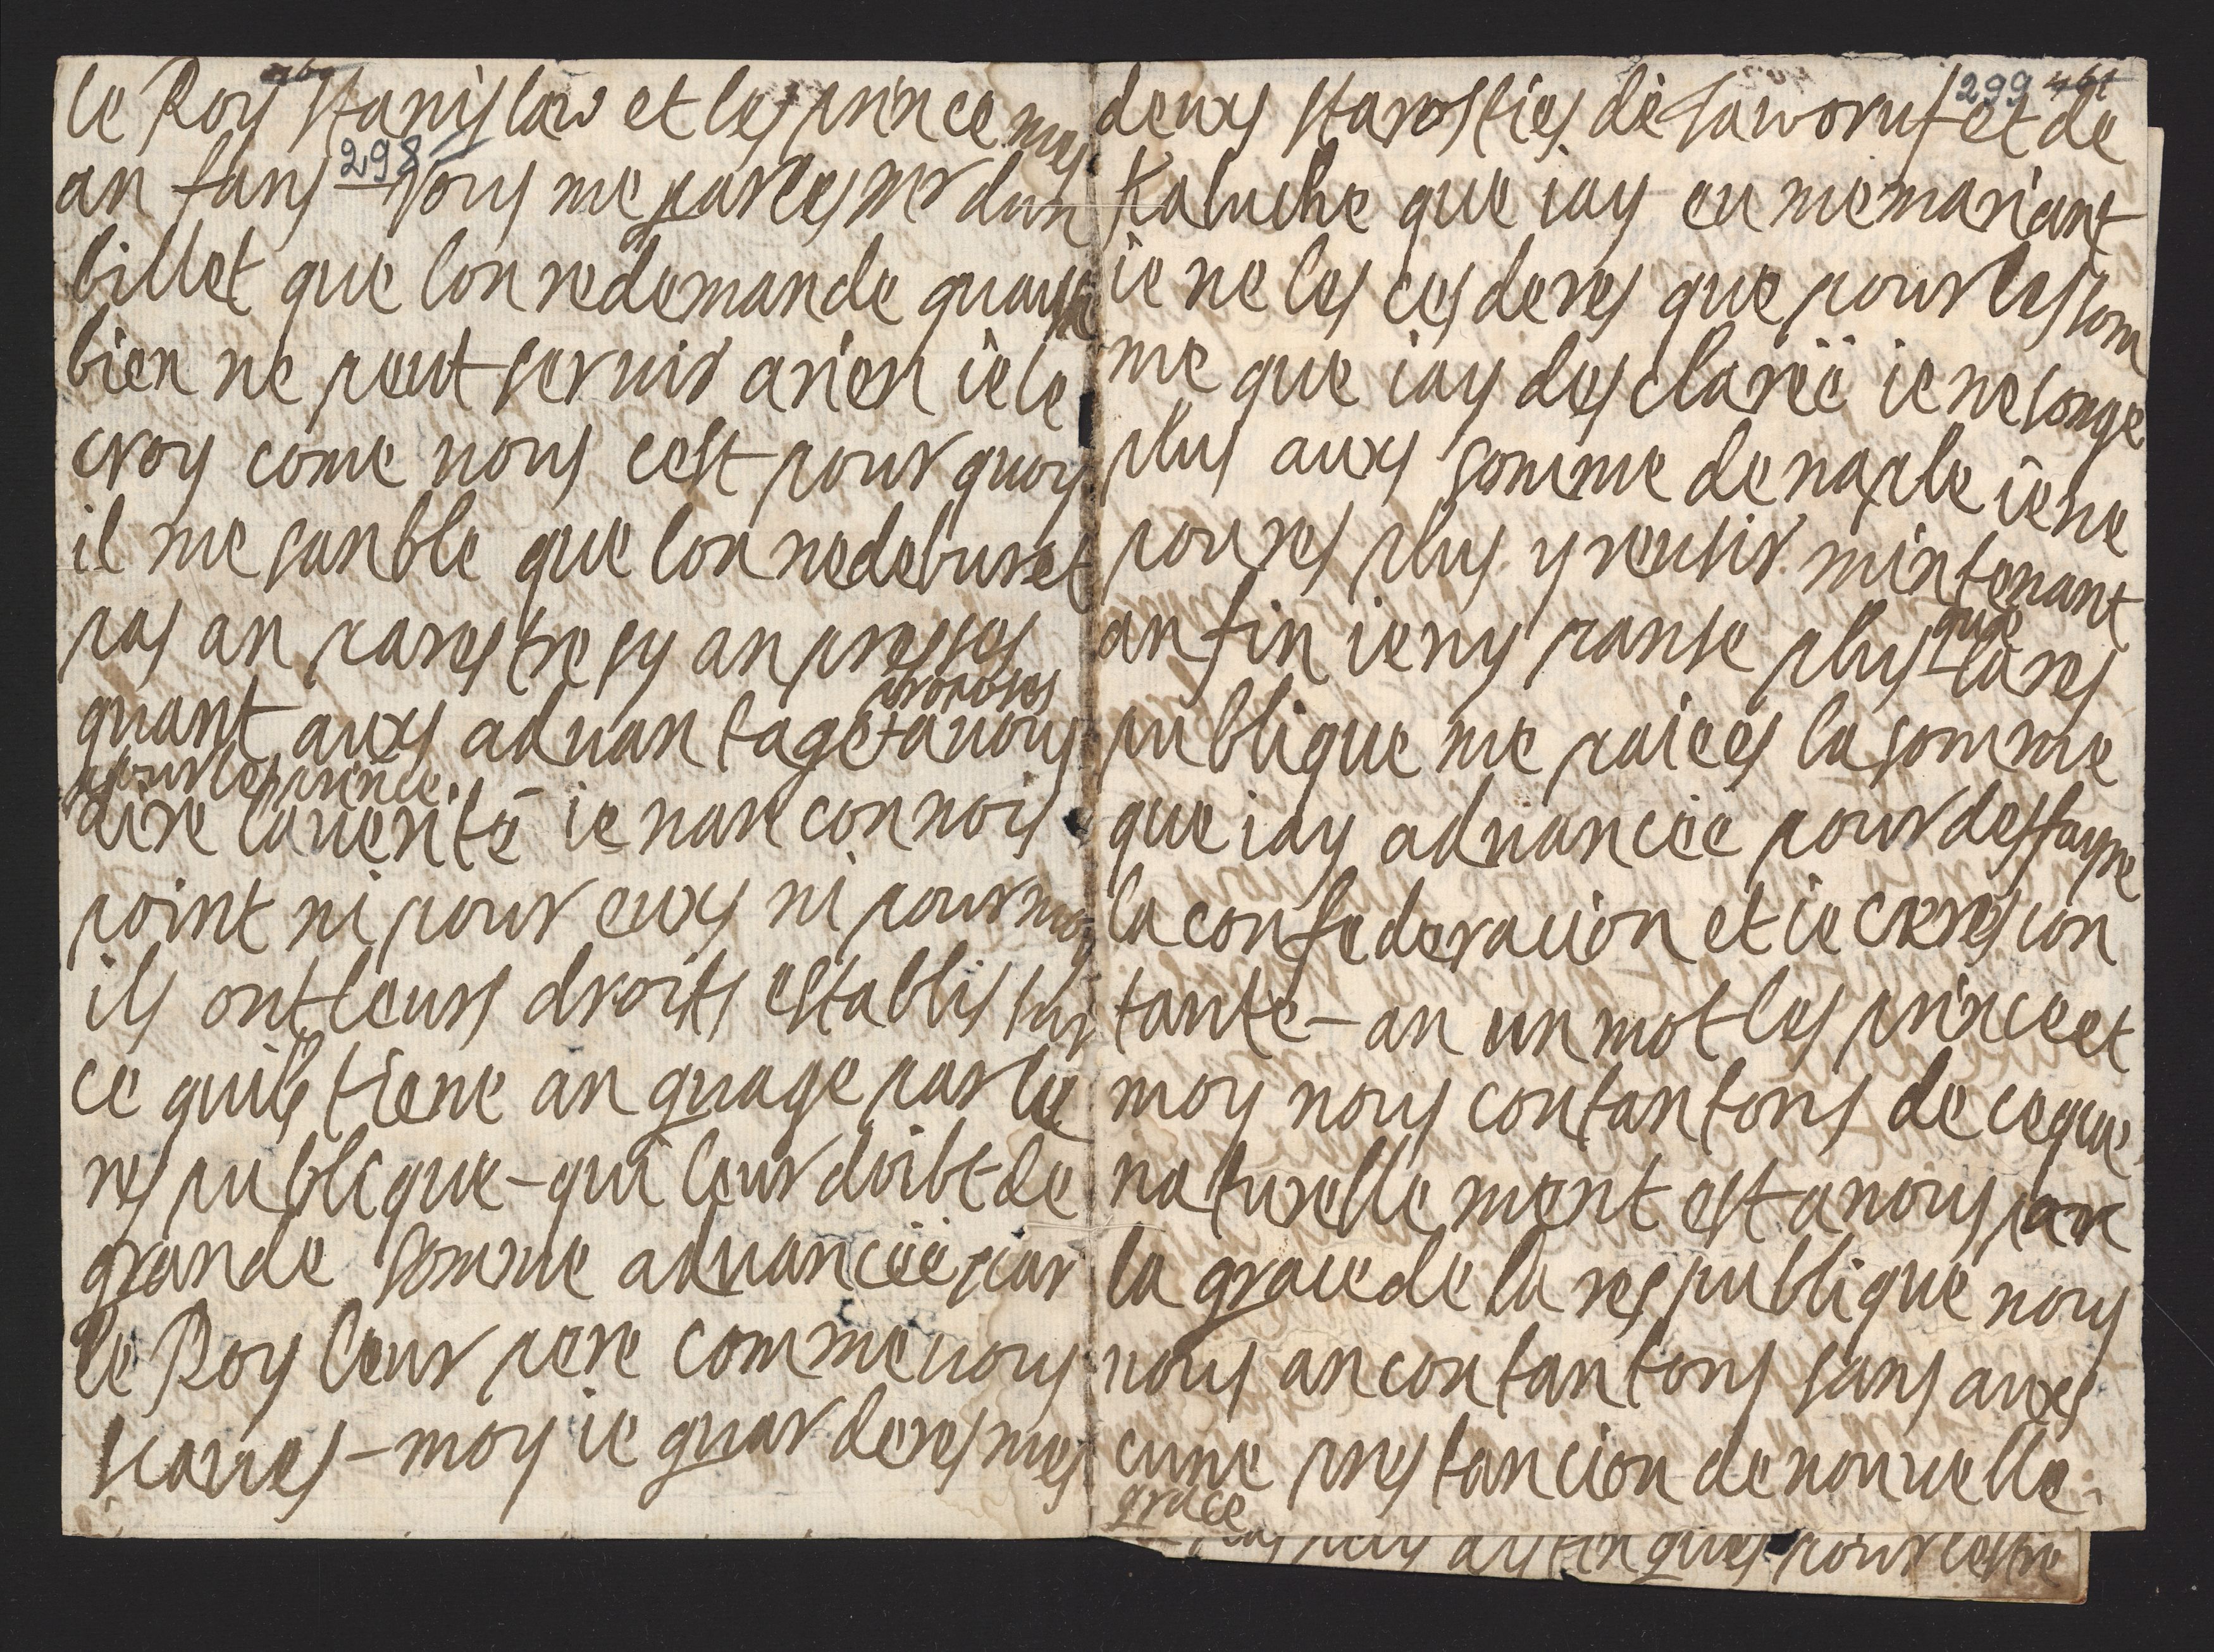 298
le Roy stanislaw et les prince mes
an fans - vous me parles mr dun
billet que lon redemande quaussi
bien ne peut servir arien ie le
croy come vous cest pour quoy
il me sanble que lon nedebvret
pas an parestre sy an presses
quant auxs advantage proposes avous
pour les prince
dire laverité ie nan connois
point ni pour euxs ni pour moy
ils ont leurs droits establis sur
ce quils tiene an guage par la
respublique - qui leur doibt de
grande somme advancéé par
le Roy leur pere comme vous
scaves - moy ie guarderes mes
299 461
deuxs starosties de Jaworuf et de
Kaluche que iay eu memariant
ie ne les cesderes que pour les som
me que iay desclaréé ie ne songe
plus auxs somme de naple ie ne
poures plus y reusir mintenant
anfin ieny panse plus que lares
publique me paiees la somme
que iay advancéé pour desfayre
la confederacion et ie seres con
tante - an un mot les prince et
moy nous contantons de ceque
naturelle ment est anous par
la grace de la respublique nous
nous ancontantons sans auxs
cune prestancion de nouvelle
grace
pour lestre